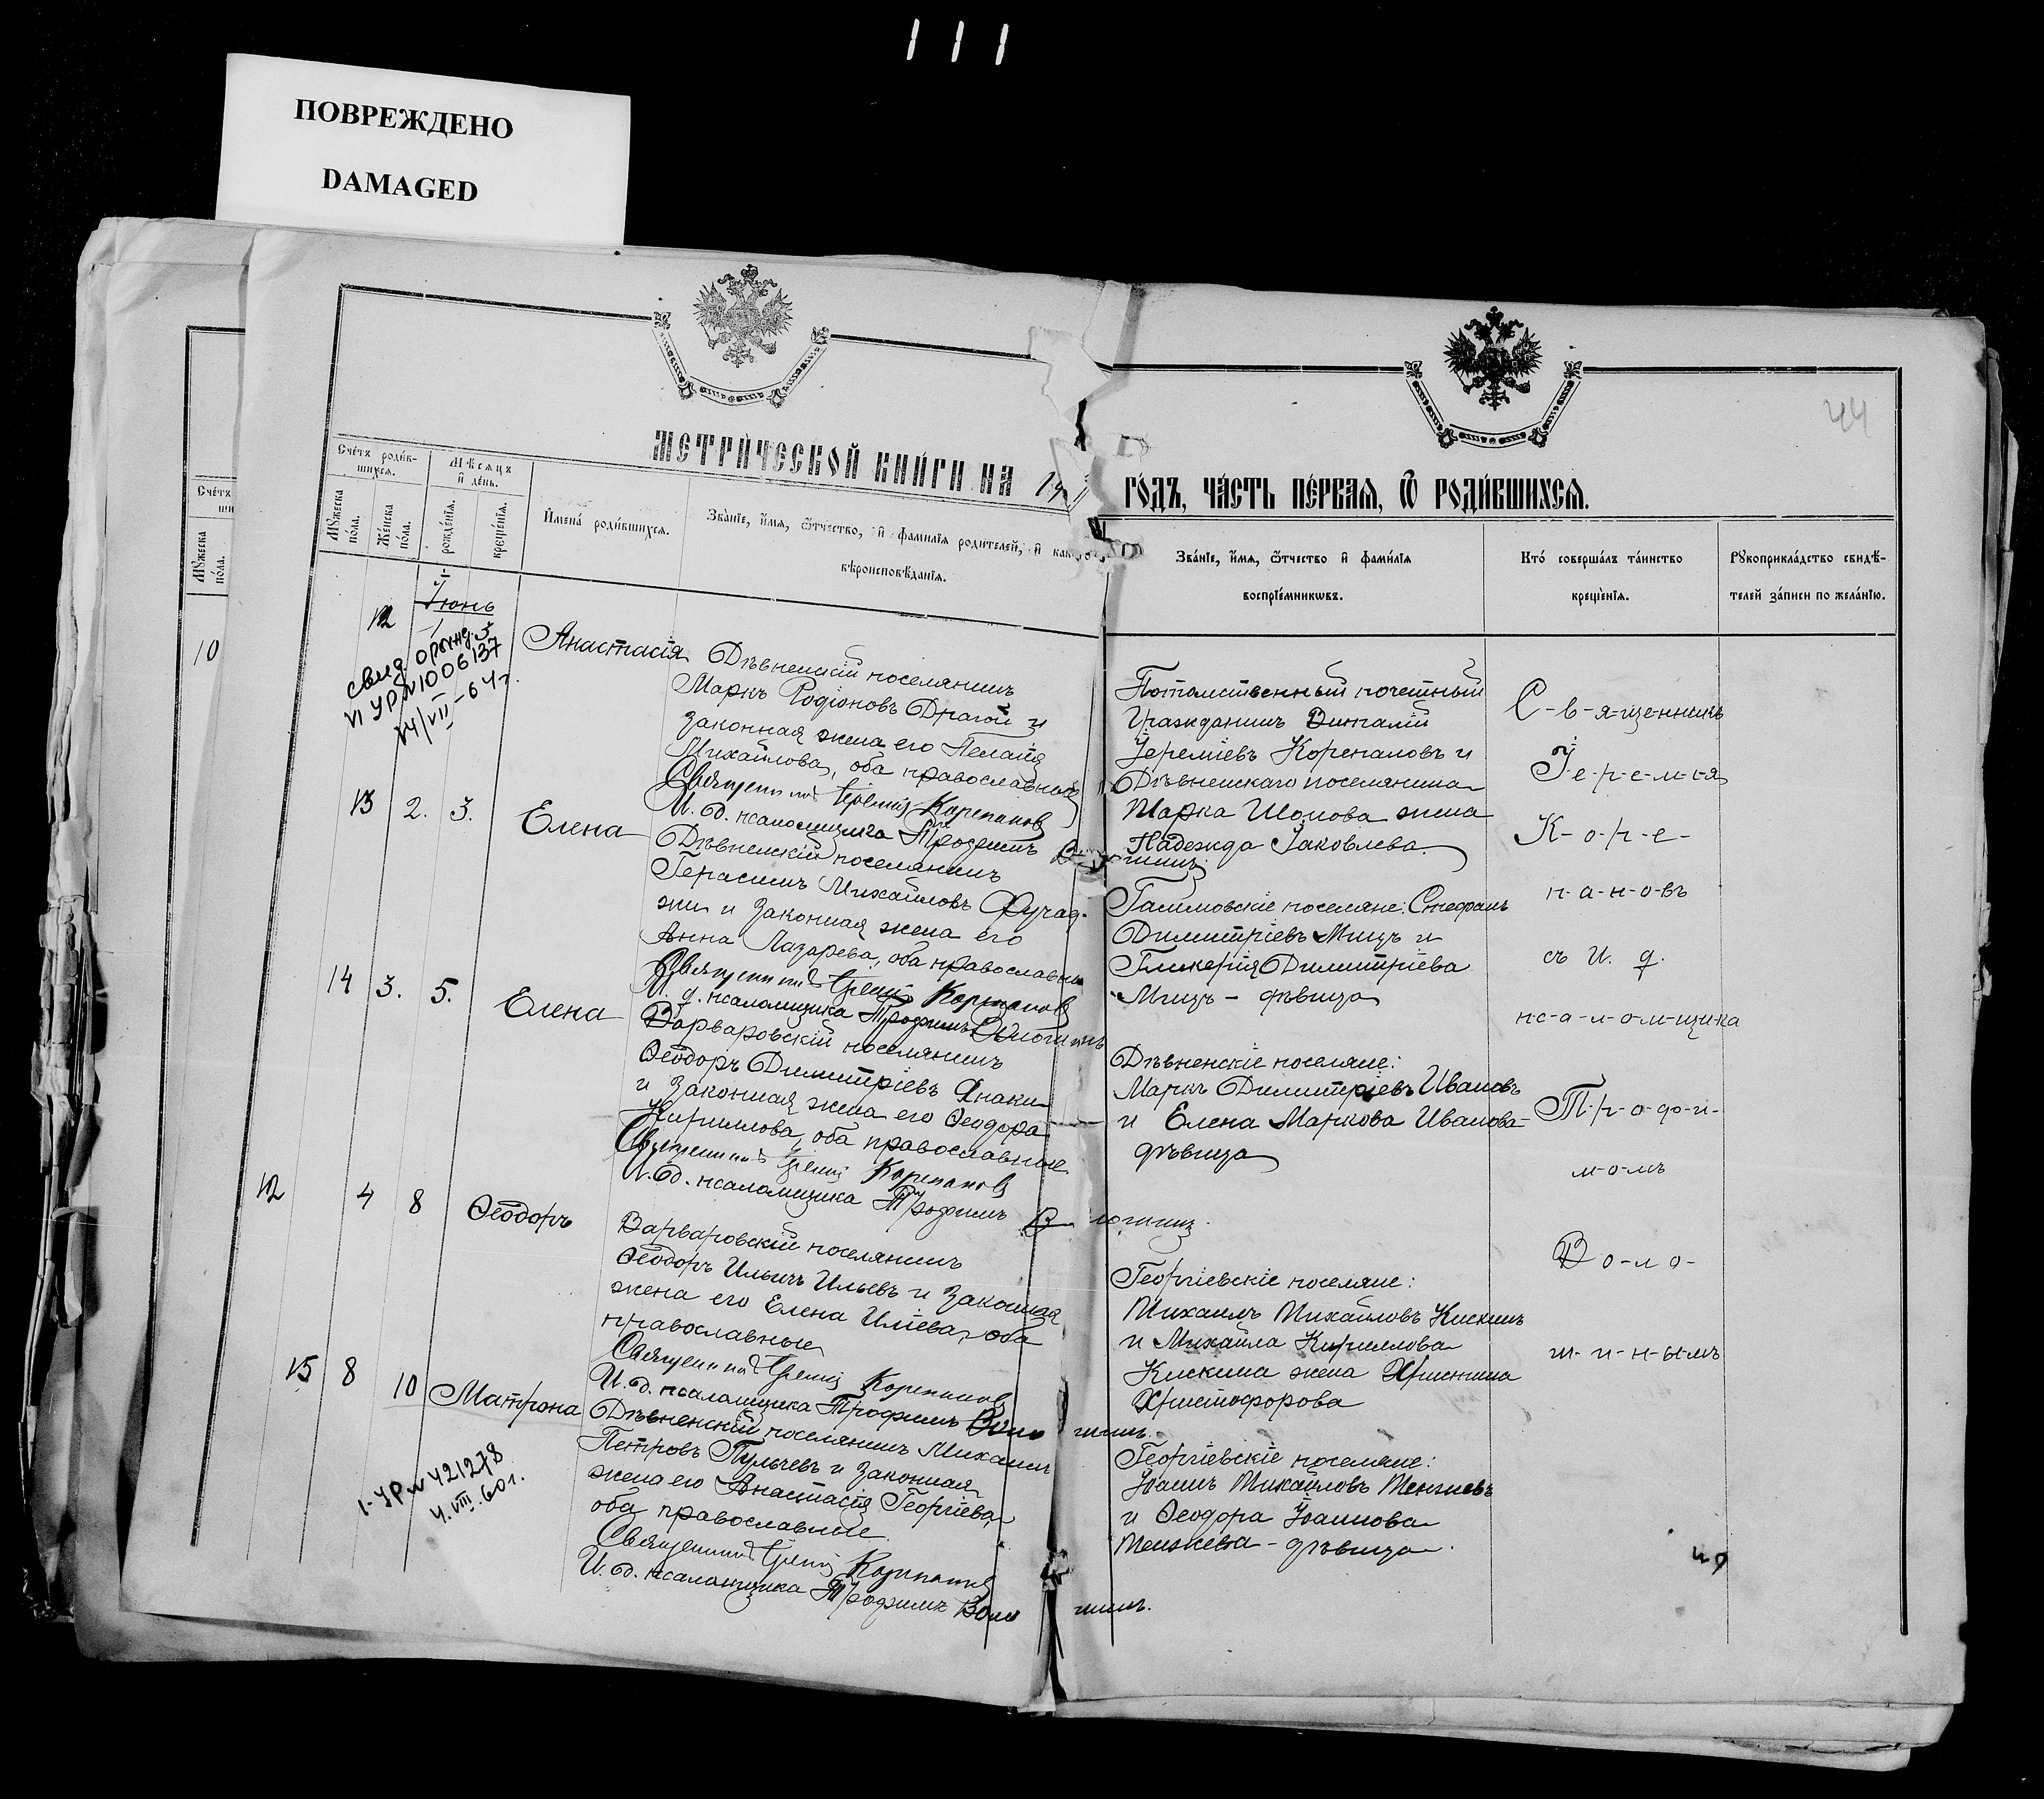 ПОВРЕЖДЕНО
DAMAGED
44
МЕТРИЧЕСКОЙ КНИГИ НА 19
ГОДЪ, ЧАСТЬ ПЕРВАЯ, Ѿ РОДИВШИХСЯ.
Счетъ родив-
шихся.
Мѣсяцъ
и день.
Мужеска
пола.
Женска
пола.
рожденія.
крещенія.
Имена родившихся.
Званіе, имя, ѿчество, и фамилія родителей, и как
вѣроисповѣданія.
Званіе, имя, ѿчество и фамилія
воспріемниковъ.
Кто совершалъ таинство
крещенія.
Рукоприкладство свидѣ-
телей записи по желанію.
Счетъ
Мужеска
пола.
10
Іюнь
12
1
3
Анастасія
свид. о рожд.
VI УР № 1006137
14/VII-64г.
Дѣвненскій поселянинъ
Маркъ Родіоновъ Драгой и
законная жена его Пелагія
Михайлова, оба православные
Священникъ Іеремія Корепановъ
И. д. псаломщика Трофимъ
Потомственный почетный
Гражданинъ Виталій
Іереміевъ Корепановъ и
Дѣвненскаго поселянина
Марка Шопова жена
Надежда Іаковлева.
13
2.
3.
Елена
Дѣвненскій поселянинъ
Герасимъ Михайловъ Фучад-
жи и законная жена его
Анна Лазарева, оба православные
Священникъ Іеремія Корепановъ
И. д. псаломщика Трофимъ Волошинъ
Галицовскіе поселяне: Стефанъ
Димитріевъ Мицъ и
Гликерія Димитріева
Мицъ - дѣвица
14
3.
5.
Елена
Варваровскій поселянинъ
Ѳеодоръ Димитріевъ Янаки
и законная жена его Ѳеодора
Кириллова, оба православные
Священникъ Іеремія Корепановъ
И. д. псаломщика Трофимъ
Дѣвненскіе поселяне:
Маркъ Димитріевъ Ивановъ
и Елена Маркова Иванова-
дѣвица
12
4
8
Ѳеодоръ
Варваровскій поселянинъ
Ѳеодоръ Ильичъ Ильевъ и законная
жена его Елена Иліева, оба
православные
Священникъ Іеремія Корепановъ
И. д. псаломщика Трофимъ Волошинъ.
Георгіевскіе поселяне:
Михаилъ Михайловъ Кискинъ
и Михаила Кириллова
Кискина жена
Христофорова
15
8
10
Матрона
I-УР № 421278
4.VIII.60г.
Дѣвненскій поселянинъ Михаилъ
Петровъ Пульчевъ и законная
жена его Анастасія Георгіева,
оба православные.
Священникъ Іеремія Корепановъ
И. д. псаломщика Трофимъ Волошинъ.
Георгіевскіе поселяне:
Іоаннъ Михайловъ
и Ѳеодора Іоаннова
дѣвица.
С-в-я-щенникъ
І-е-р-е-м-і-я
К-о-р-е-
п-а-н-о-въ
съ И. д.
пс-а-л-ом-щика
Т-р-о-фи-
м-омъ
В-о-ло-
ш-и-н-ымъ